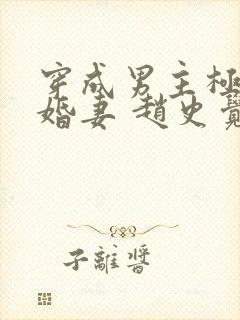 穿成男主极
婚妻 趙史覺
子離醬